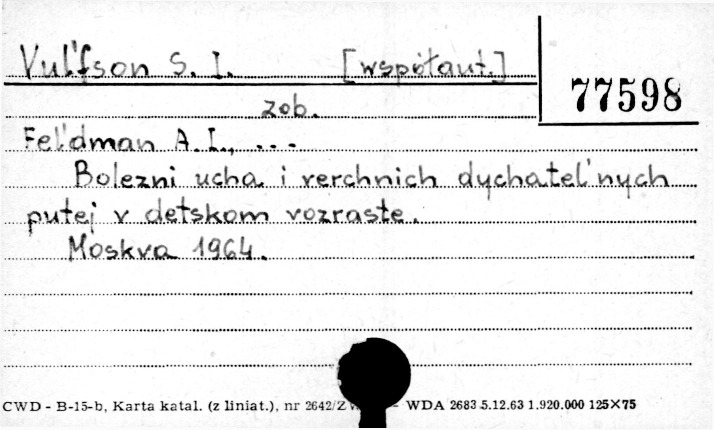 Vul'fson S. I. [współaut.]
77598
zob.
Fel'dman A.I., ...
Bolezni ucha i verchnich dychatel'nych
putej v detskom vozraste.
Moskva 1964.
CWD - B-15-b, Karta katal. (z liniat.), nr 2642/ - WDA 2683 5.12.63 1.920.000 125×75